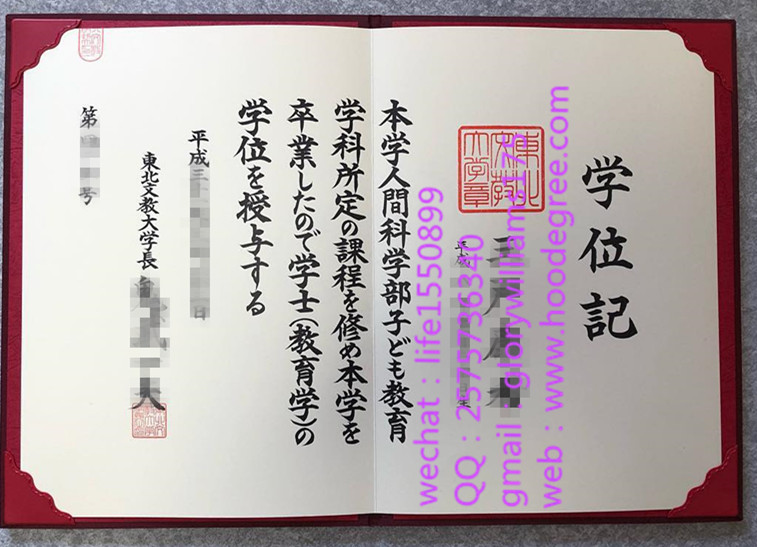 学位記
東北文教大学章
平成
本学人間科学部子ども教育
学科所定の課程を修め本学を
卒業したので学士(教育学)の
学位を授与する
平成三 日
東北文教大学長
第 号
wechat : life1550899
QQ : 2575736340
gmail :
web : www.hoodegree.com